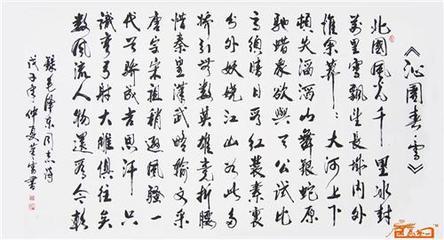 《沁園春雪》
北國風光千里冰封
萬里雪飄望長城內外
惟餘莽莽大河上下
頓失滔滔山舞銀蛇原
馳蠟象欲與天公試比
高須晴日看紅裝素裹
分外妖嬈江山如此多
嬌引無數英雄競折腰
惜秦皇漢武略輸文采
唐宗宋祖稍遜風騷一
代天驕成吉思汗只
識彎弓射大雕俱往矣
數風流人物還看今朝
錄毛澤東同志詩
戊子年仲夏書